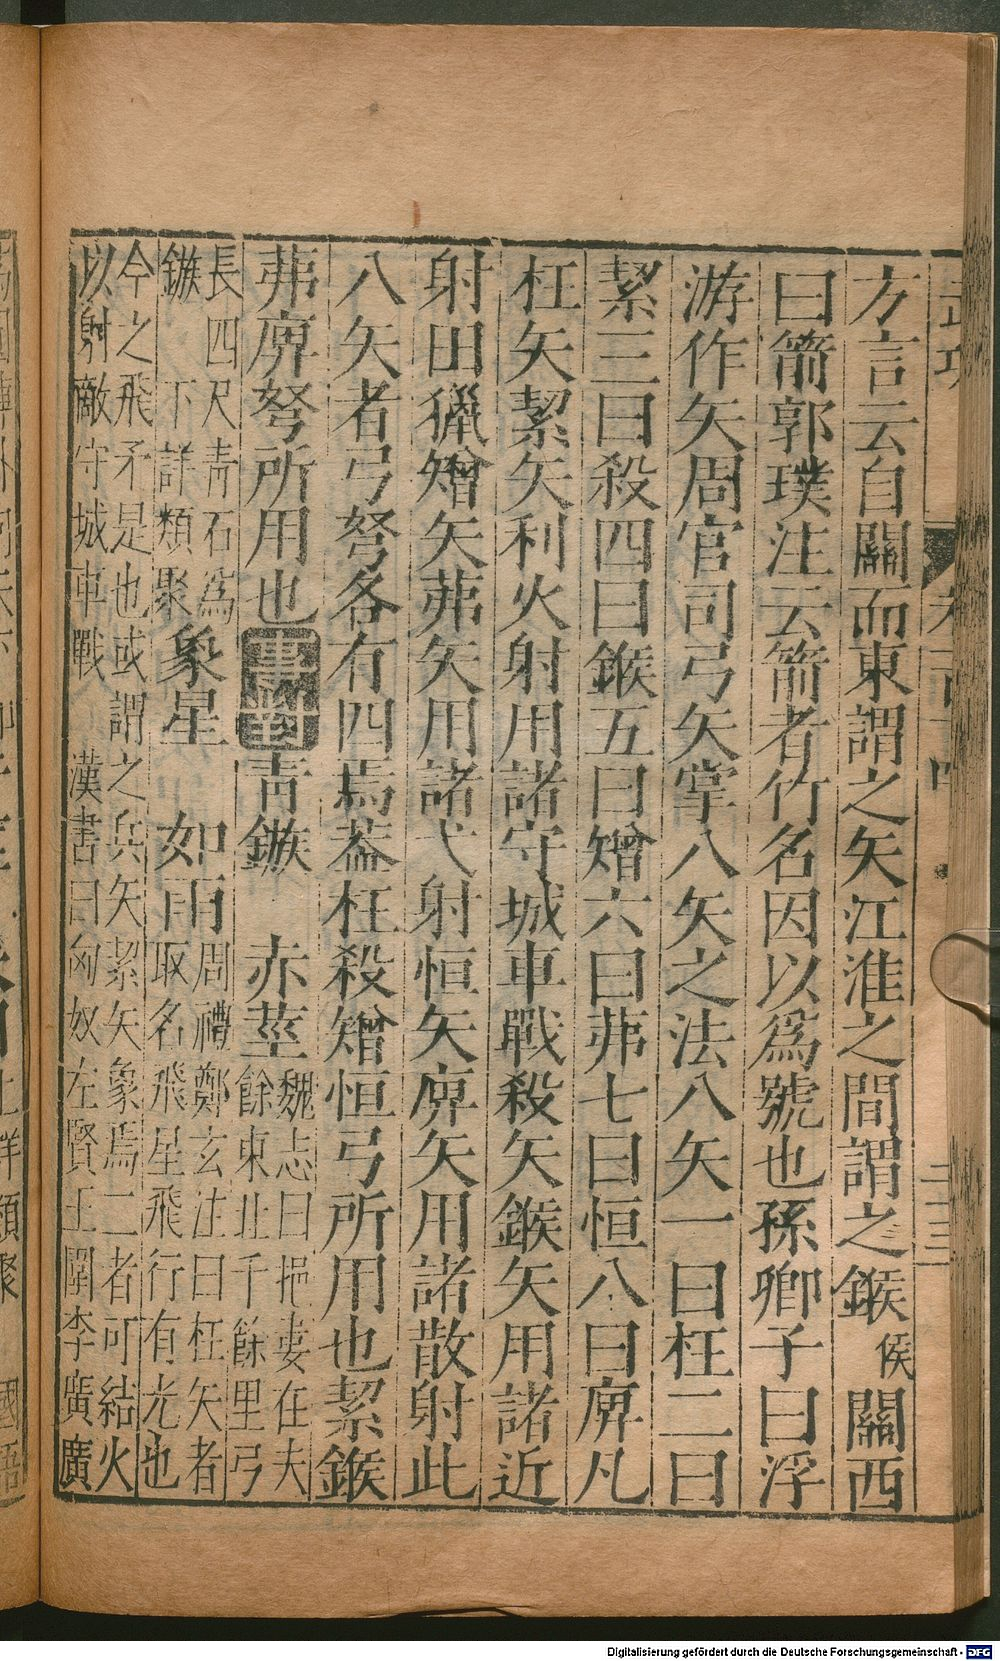 方言云自關而東謂之矢江淮之間謂之鍭侯關西
曰箭郭璞注云箭者竹名因以爲號也孫卿子曰浮
游作矢周官司弓矢掌八矢之法八矢一曰枉二曰
絜三曰殺四曰鍭五曰矰六曰茀七曰恒八曰庳凡
枉矢絜矢利火射用諸守城車戰殺矢鍭矢用諸近
射田獵矰矢茀矢用諸弋射恒矢庳矢用諸散射此
八矢者弓弩各有四焉葢枉殺矰恒弓所用也絜鍭
茀庳弩所用也事對青鏃 赤莖魏志曰挹婁在夫
餘東北千餘里弓
長四尺青石爲
鏃 下詳類聚象星 如雨周禮鄭玄注曰枉矢者
取名飛星飛行有光也
今之飛矛是也或謂之兵矢絜矢象焉二者可結火
以射敵守城車戰 漢書曰匈奴左賢王圍李廣廣
二三
Digitalisierung gefördert durch die Deutsche Forschungsgemeinschaft - DFG